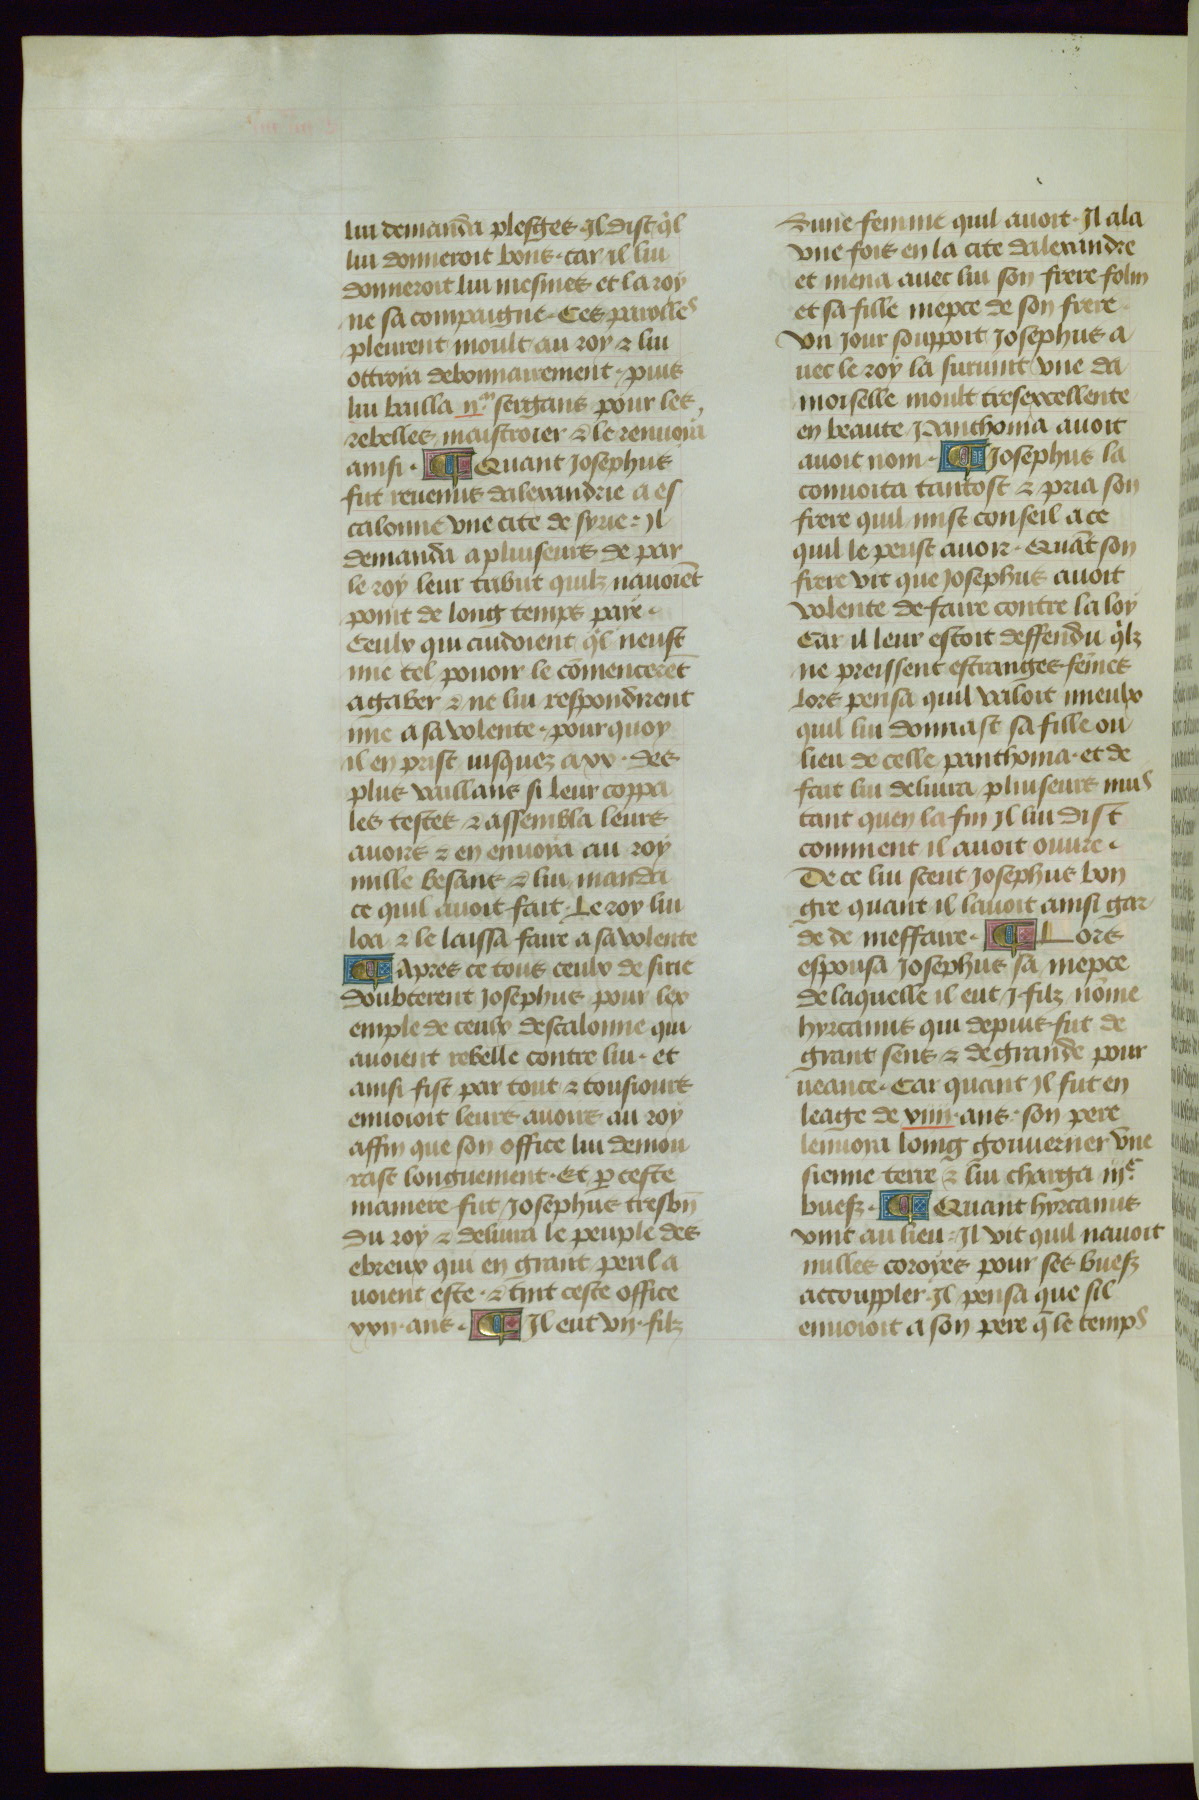 lui demanda plesges. Il dist q̃l
lui donneroit bons. car il lui
donneroit lui mesmes et la roy
ne sa compaigne. Ces parolles
pleurent moult au roy ⁊ lui
ottroya debonnairement. puis
lui bailla ii.m sergans pour les
rebelles maistroier ⁊ le renuoya
ainsi. ¶ Quant Josephus
fut reuenus dalexandrie a es
calonne vne cite de syrie: Il
demanda a pluiseurs de par
le roy leur tabut quilz nauoiẽt
point de long temps paye.
Ceulx qui cuidoient q̃l neust
mie tel pouoir le cõmencerẽt
a gaber ⁊ ne lui respondirent
mie a sa volente. pour quoy
il en prist iusquez a xx. des
plus vaillans si leur coppa
les testes ⁊ assembla leurs
auoirs ⁊ en enuoya au roy
mille besans ⁊ lui manda
ce quil auoit fait. Le roy lui
loa ⁊ le laissa faire a sa volente
¶ Apres ce tous ceulx de sirie
doubterent Josephus pour lex
emple de ceulx descalonne qui
auoient rebelle contre lui. et
ainsi fist par tout ⁊ tousiours
enuoioit leurs auoirs au roy
affin que son office lui demou
rast longuement. Et ꝑ ceste
maniere fut Josephus tresbñ
du roy ⁊ deliura le peuple des
ebreux qui en grant peril a
uoient este. ⁊ tint ceste office
xxii. ans. ¶ Il eut vii. filz
dune femme quil auoit. Il ala
vne fois en la cite dalexandre
et mena auec lui son frere solin
et sa fille niepce de son frere.
Vn jour souppoit Josephus a
uec le roy la suruint vne da
moiselle moult tresexcellente
en beaute Panthonia auoit
auoit nom. ¶ Josephus la
conuoita tantost ⁊ pria son
frere quil mist conseil a ce
quil le peust auoir. Quãt son
frere vit que Josephus auoit
volente de faire contre la loy
Car il leur estoit deffendu q̃lz
ne preissent estranges fẽmes
Lors pensa quil valoit mieulx
quil lui donnast sa fille ou
lieu de celle panthonia. et de
fait lui deliura pluiseurs nuis
tant quen la fin Il lui dist
comment il auoit ouure.
De ce lui sceut Josephus bon
gre quant il lauoit ainsi gar
de de meffaire. ¶ Lors
espousa Josephus sa niepce
de laquelle il eut j. filz nõme
hyrcanus qui depuis fut de
grant sens ⁊ de grande pour
ueance. Car quant Il fut en
leage de xiiii. ans. son pere
lenuoya loing gouuerner vne
sienne terre ⁊ lui charga iii.c
buefz. ¶ Quant hyrcanus
vint au lieu: Il vit quil nauoit
nulles coroyes pour ses buefz
accouppler. Il pensa que sil
enuoioit a son pere q̃ le temps